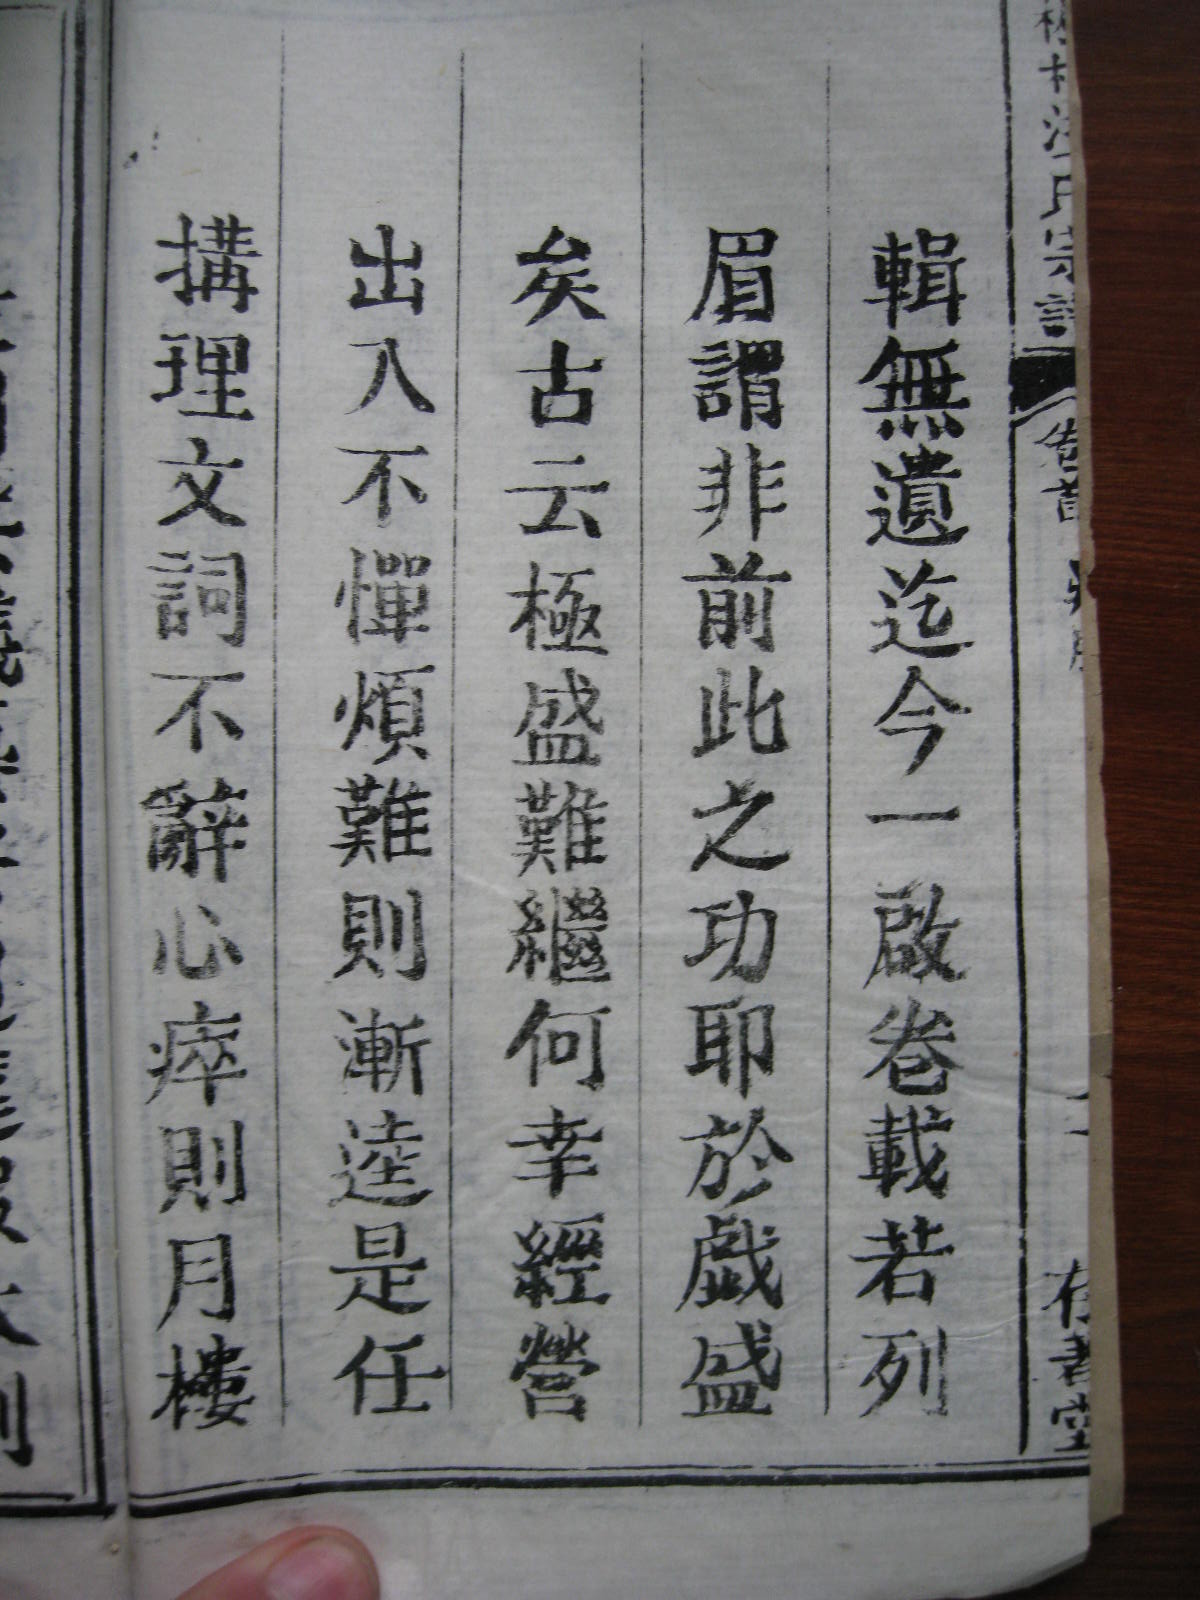 氏宗譜
存著堂
輯無遺迄今一啟卷載若列
眉謂非前此之功耶於戲盛
矣古云極盛難繼何幸經營
出入不憚煩難則漸逵是任
搆理文詞不辭心瘁則月樓